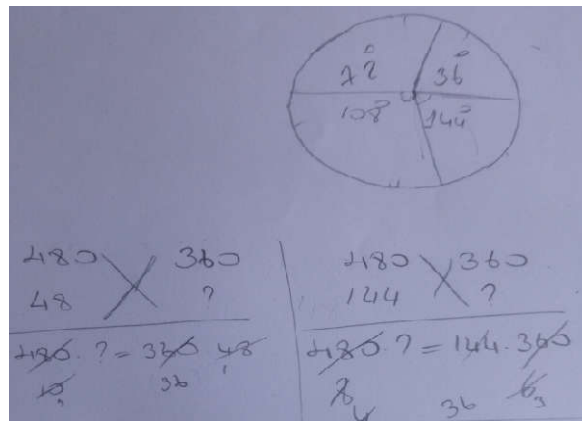 72° 36°
108° 144°
480 360
48 ?
480 · ? = 360 48
10 36 1
480 360
144 ?
480 · ? = 144 · 360
8 4 36 6 3